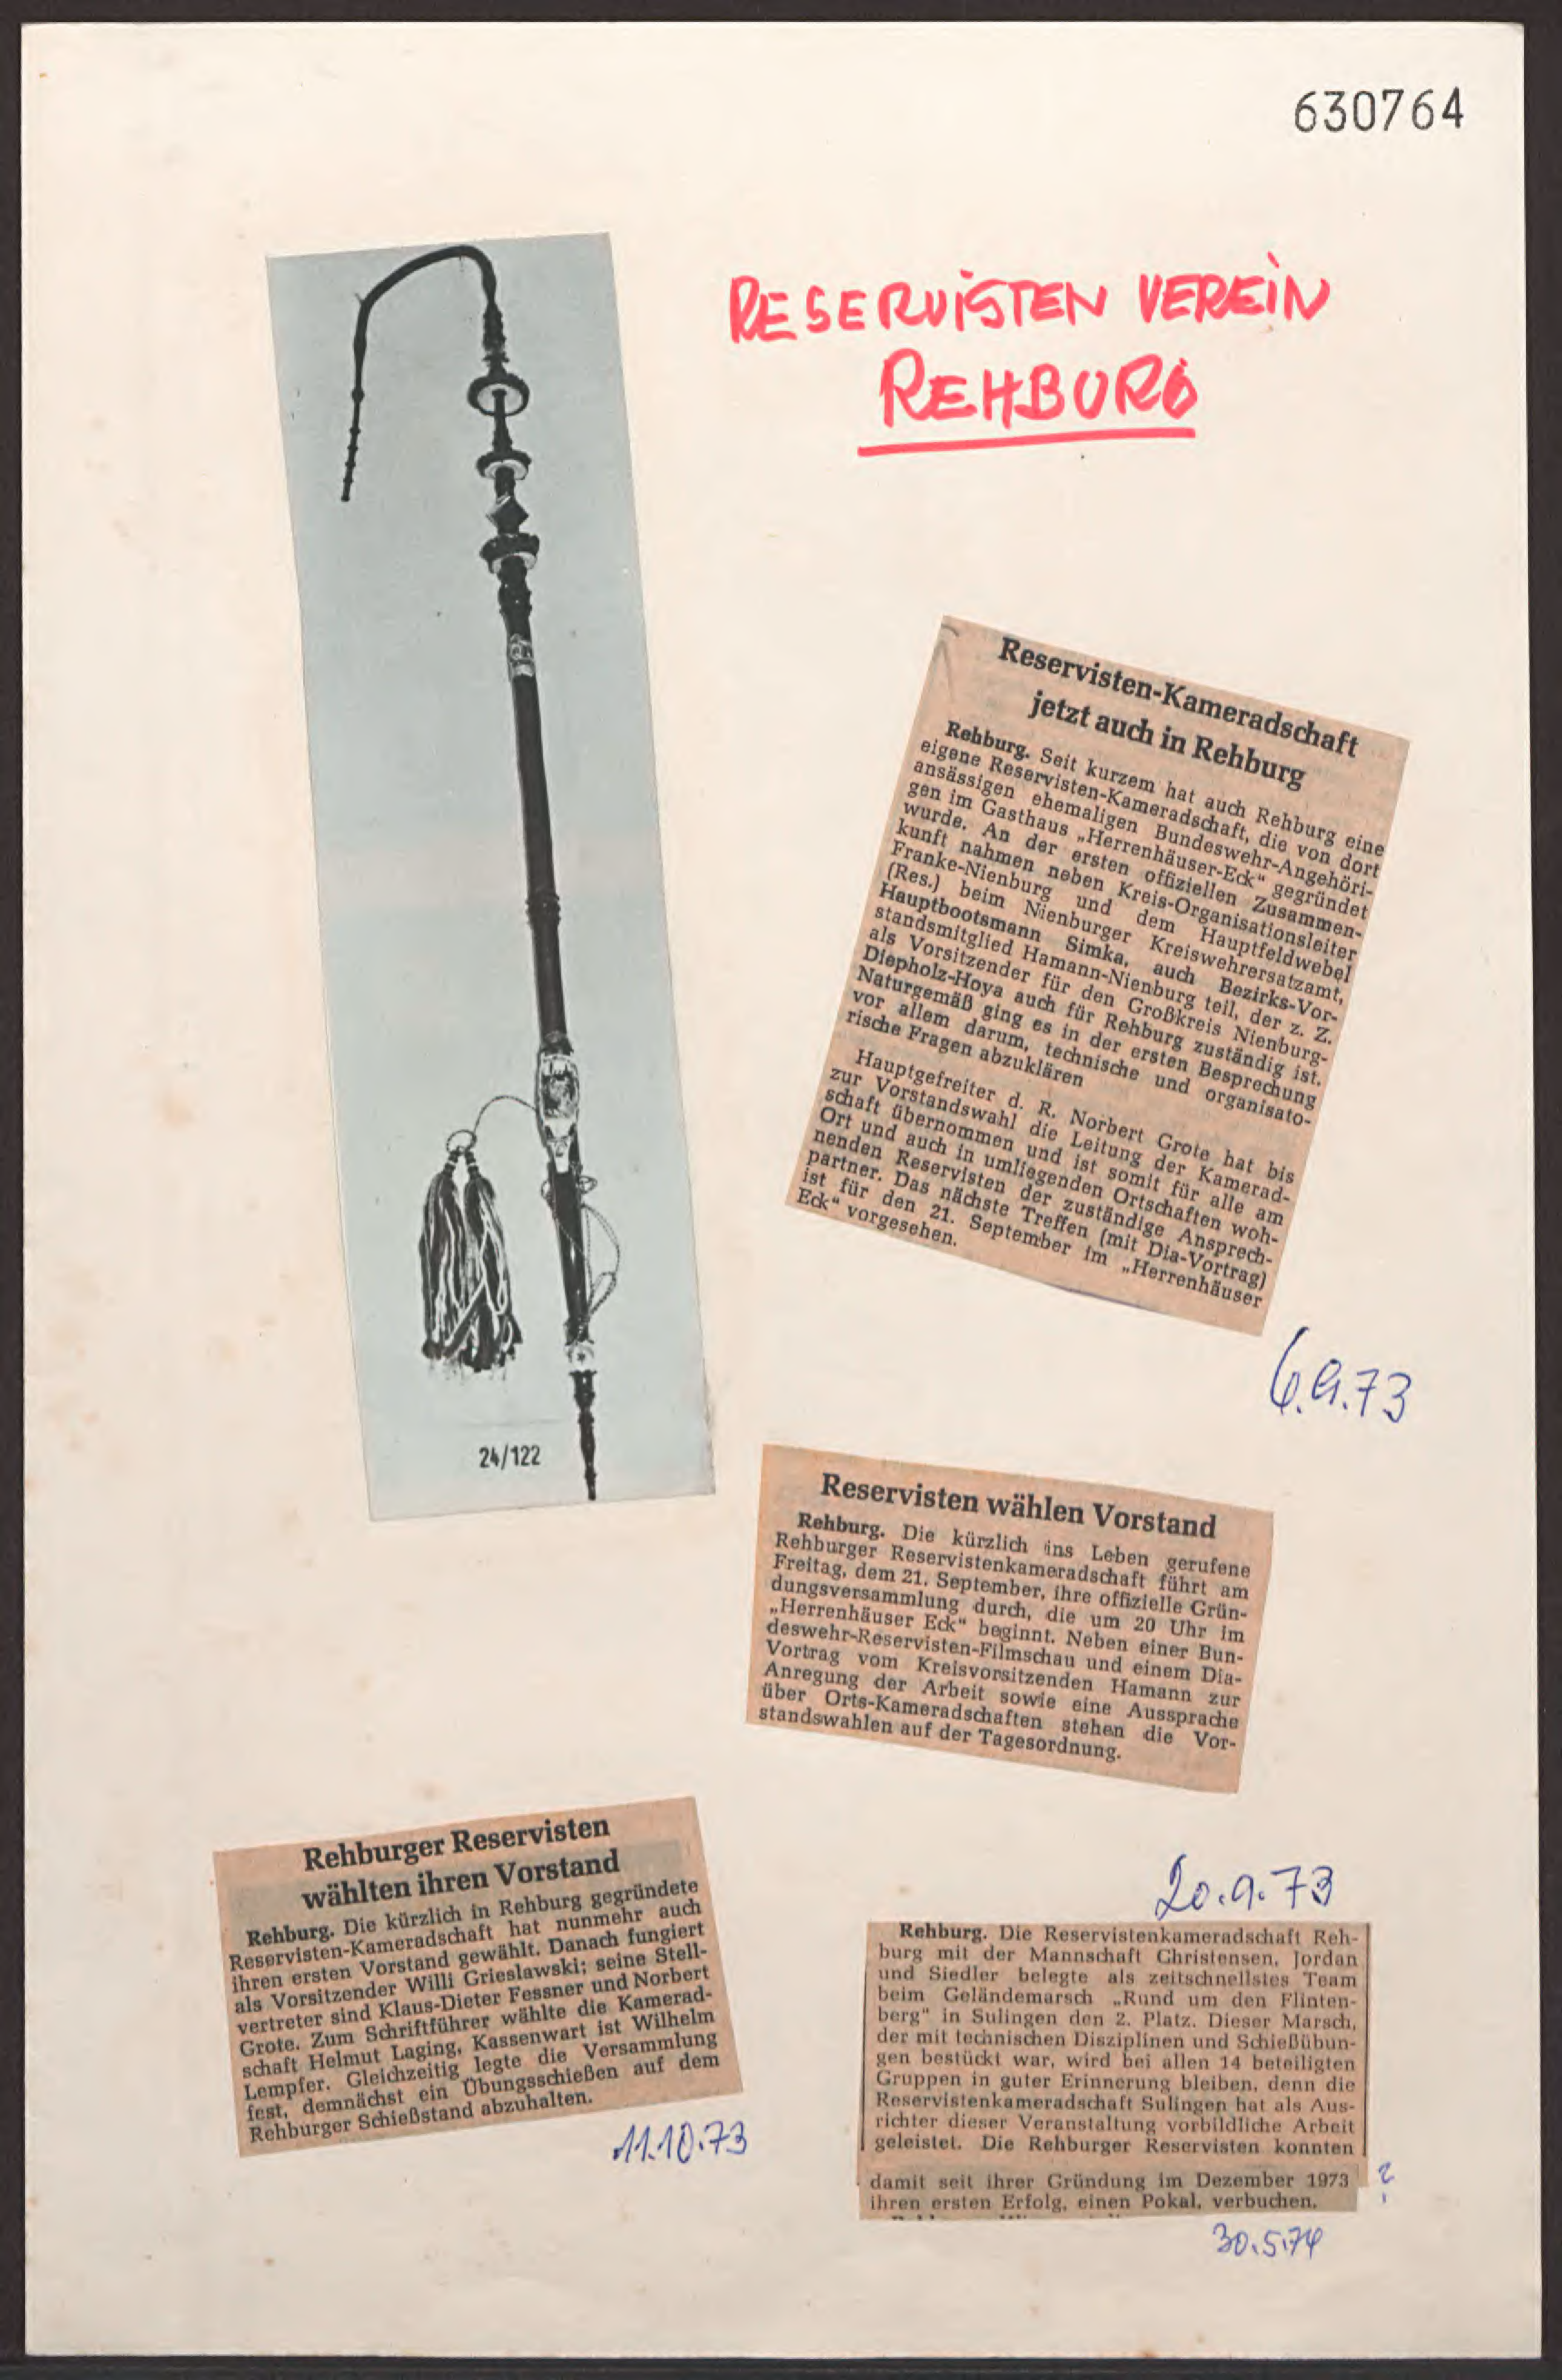 630764
RESERVISTEN VEREIN
REHBURG
24/122
Reservisten-Kameradschaft
jetzt auch in Rehburg
Rehburg. Seit kurzem hat auch Rehburg eine
eigene Reservisten-Kameradschaft, die von dort
ansässigen ehemaligen Bundeswehr-Angehöri-
gen im Gasthaus „Herrenhäuser-Eck“ gegründet
wurde. An der ersten offiziellen Zusammen-
kunft nahmen neben Kreis-Organisationsleiter
Franke-Nienburg und dem Hauptfeldwebel
(Res.) beim Nienburger Kreiswehrersatzamt,
Hauptbootsmann Simka, auch Bezirks-Vor-
standsmitglied Hamann-Nienburg teil, der z. Z.
als Vorsitzender für den Großkreis Nienburg-
Diepholz-Hoya auch für Rehburg zuständig ist.
Naturgemäß ging es in der ersten Besprechung
vor allem darum, technische und organisato-
rische Fragen abzuklären
Hauptgefreiter d. R. Norbert Grote hat bis
zur Vorstandswahl die Leitung der Kamerad-
schaft übernommen und ist somit für alle am
Ort und auch in umliegenden Ortschaften woh-
nenden Reservisten der zuständige Ansprech-
partner. Das nächste Treffen (mit Dia-Vortrag)
ist für den 21. September im „Herrenhäuser
Eck“ vorgesehen.
6.9.73
Reservisten wählen Vorstand
Rehburg. Die kürzlich ins Leben gerufene
Rehburger Reservistenkameradschaft führt am
Freitag, dem 21. September, ihre offizielle Grün-
dungsversammlung durch, die um 20 Uhr im
„Herrenhäuser Eck“ beginnt. Neben einer Bun-
deswehr-Reservisten-Filmschau und einem Dia-
Vortrag vom Kreisvorsitzenden Hamann zur
Anregung der Arbeit sowie eine Aussprache
über Orts-Kameradschaften stehen die Vor-
standswahlen auf der Tagesordnung.
20.9.73
Rehburger Reservisten
wählten ihren Vorstand
Rehburg. Die kürzlich in Rehburg gegründete
Reservisten-Kameradschaft hat nunmehr auch
ihren ersten Vorstand gewählt. Danach fungiert
als Vorsitzender Willi Grieslawski; seine Stell-
vertreter sind Klaus-Dieter Fessner und Norbert
Grote. Zum Schriftführer wählte die Kamerad-
schaft Helmut Laging, Kassenwart ist Wilhelm
Lempfer. Gleichzeitig legte die Versammlung
fest, demnächst ein Übungsschießen auf dem
Rehburger Schießstand abzuhalten.
11.10.73
Rehburg. Die Reservistenkameradschaft Reh-
burg mit der Mannschaft Christensen, Jordan
und Siedler belegte als zeitschnellstes Team
beim Geländemarsch „Rund um den Flinten-
berg“ in Sulingen den 2. Platz. Dieser Marsch,
der mit technischen Disziplinen und Schießübun-
gen bestückt war, wird bei allen 14 beteiligten
Gruppen in guter Erinnerung bleiben, denn die
Reservistenkameradschaft Sulingen hat als Aus-
richter dieser Veranstaltung vorbildliche Arbeit
geleistet. Die Rehburger Reservisten konnten
damit seit ihrer Gründung im Dezember 1973 ?
ihren ersten Erfolg, einen Pokal, verbuchen.
30.5.74